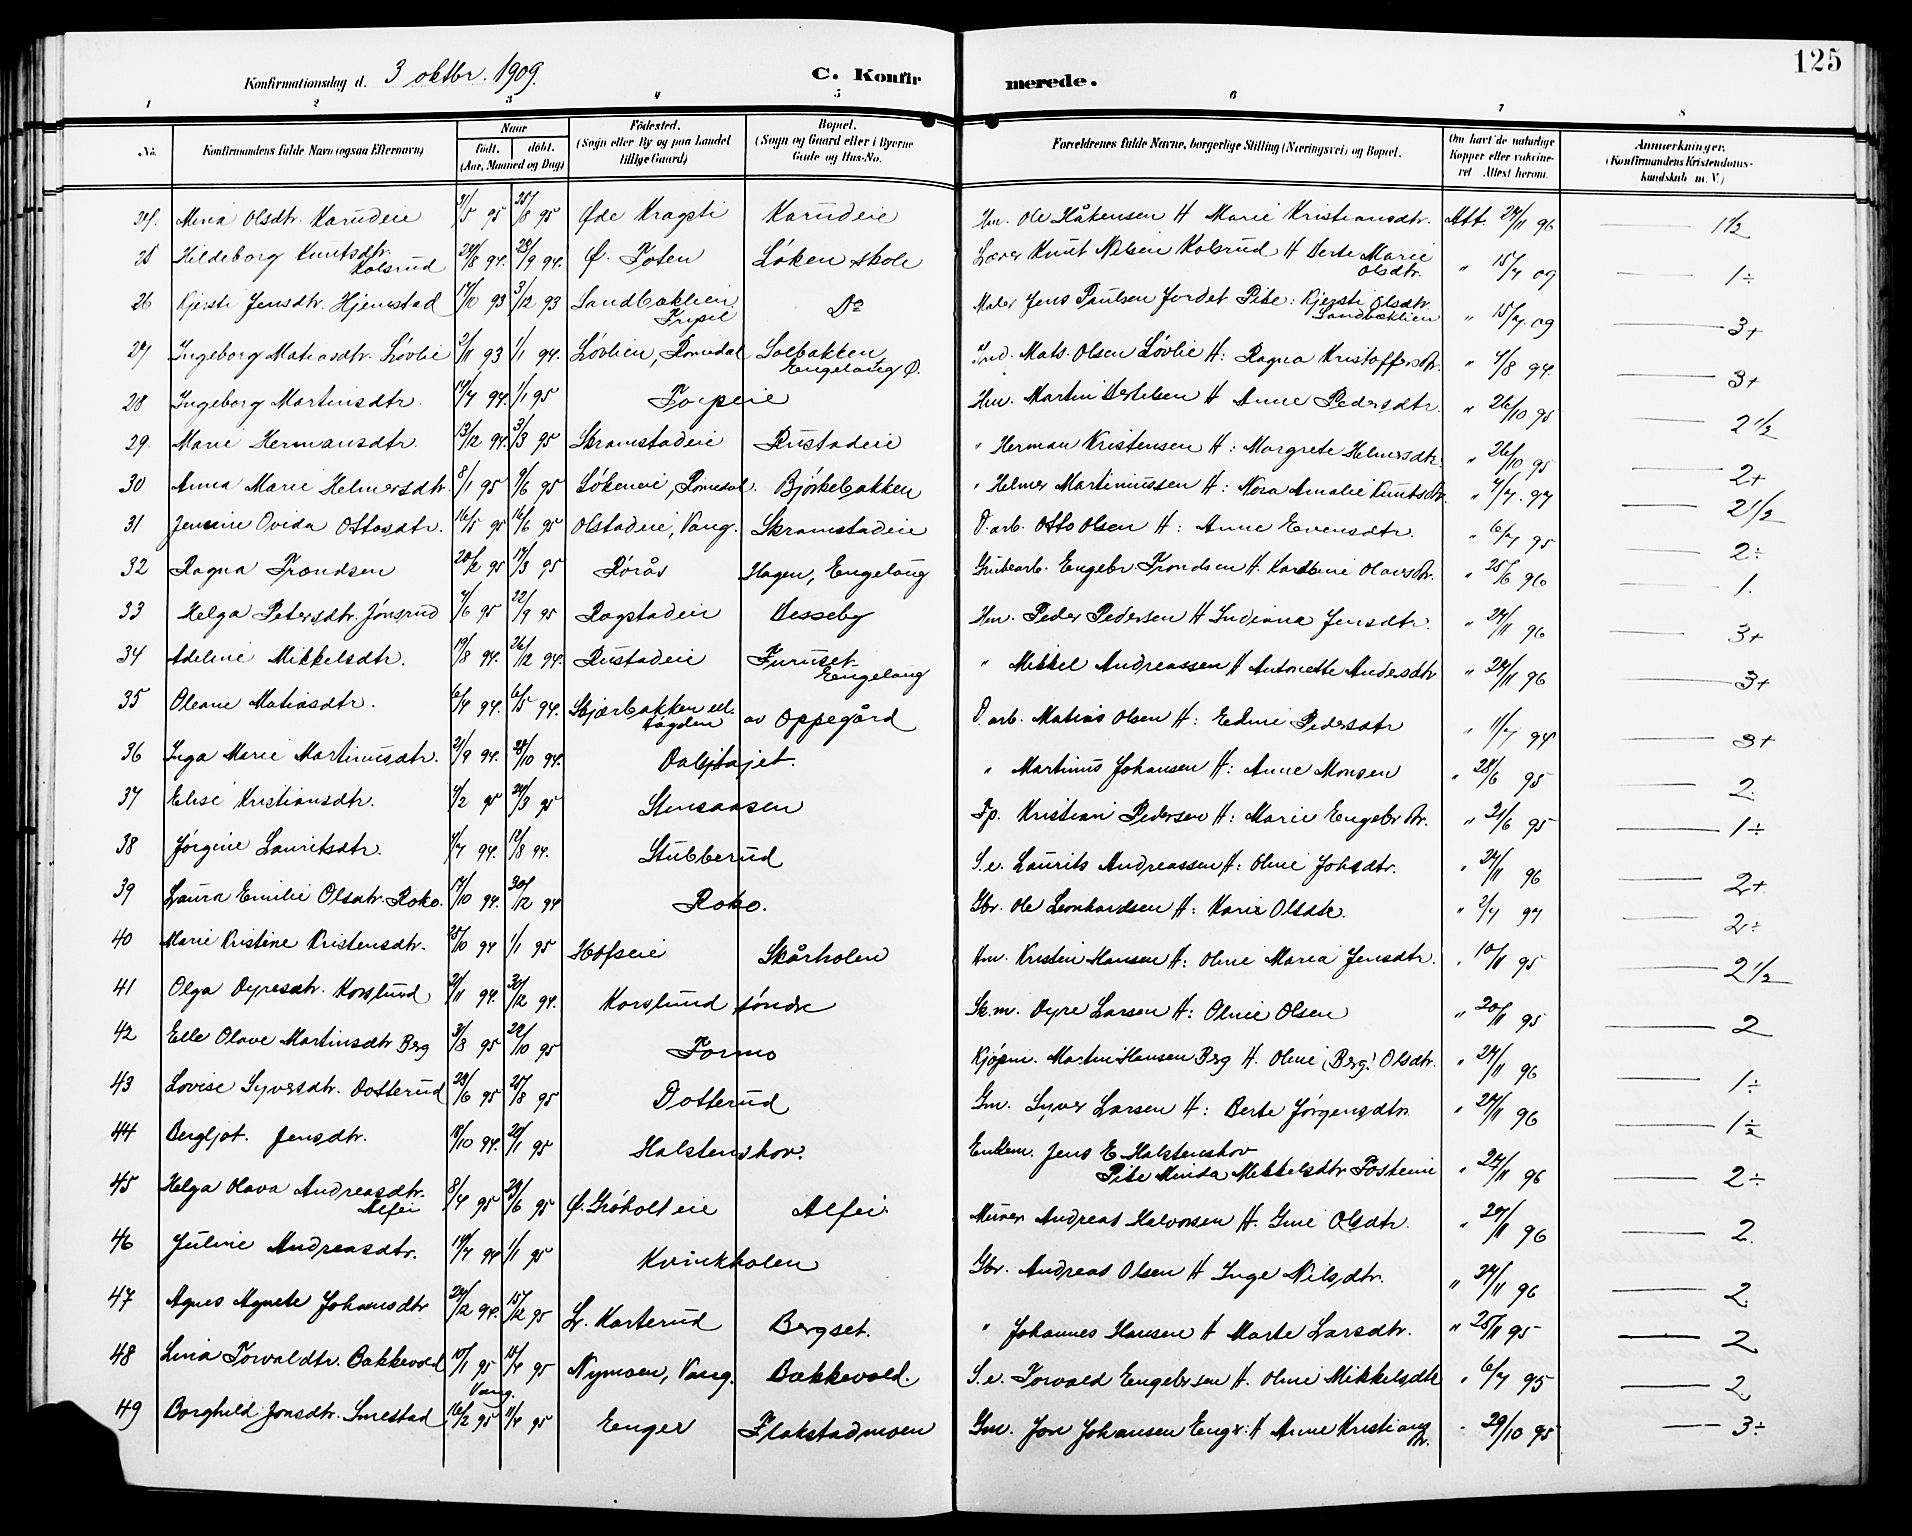 125
Konfirmationsdag d. 3 oktbr. 1909. C. Konfirmerede.
1 2 3 4 5 6 7 8
No. Konfirmandens fulde Navn (ogsaa Efternavn) Naar födt. döbt. (Aar, Maaned og Dag) Födested. (Sogn eller By og paa Landet tillige Gaard) Bopæl. (Sogn og Gaard eller i Byerne Gade og Hus-No. Forældrenes fulde Navne, borgerlige Stilling (Næringsvei) og Bopæl. Om havt de naturlige Kopper eller vakcineret Attest herom. Anmærkninger. (Konfirmandens Kristendomskundskab m. V.)
24. Mina Olsdtr. Karudeie 31/5 95 25/8 95 Øde Kragsti Karudeie Hm. Ole Håkensen H Marie Kristiansdtr. Att. 24/11 96 1½
25 Hildeborg Knutsdtr. Kolsrud 24/8 94. 23/9 94. Ø. Toten Løken skole Lærer Knut Nilsen Kolsrud H Berte Marie Olsdtr. " 15/7 09 1÷
26 Kjersti Jensdtr. Hjemstad 17/10 93 3/12 93 Sandbaklien Trysil Do Maler Jens Paulsen Jordet Pike: Kjersti Olsdtr. Sandbæklien " 15/7 09 3+
27 Ingeborg Matiasdtr. Løvlie 2/11 93 1/1 94. Løvlien, Romedal Solbakken, Engelaug Ø. Ind. Mats. Olsen Løvlie H: Ragna Kristoffersdtr. " 4/8 94. 3+
28 Ingeborg Martinsdtr. 19/7 94. 1/1 95 Torpeie Hm. Martin Bertelsen H Anne Pedersdtr. " 26/10 95 2½
29. Marie Hermansdtr. 13/12 94. 3/3 95 Skramstadeie Rustadeie " Herman Kristensen H: Margrete Helmersdtr. " 26/10 95 2+
30 Anna Marie Helmersdtr. 8/1 95 9/6 95 Løkeneie, Romedal. Bjørkebakken " Helmer Martiniussen H: Nora Amalie Knutsdtr. " 4/7 97 2½
31 Jensine Ovida Ottosdtr. 16/5 95 16/6 95 Olstadeie, Vang. Skramstadeie D. arb. Otto Olsen H: Anne Evensdtr. " 6/7 95 2÷
32 Ragna Trondsen 20/2 95 17/3 95 Røros Hagen, Engelaug Grubearb. Engebr. Trondsen H. Karoline Olavsdtr. " 25/6 96 1.
33 Helga Petersdtr. Jønsrud 4/6 95 22/9 95 Rogstadeie Desseby Hm. Peder Pedersen H Indiana Jensdtr. " 24/11 96 3+
34 Adeline Mikkelsdtr. 19/8 94. 26/12 94. Rustadeie Furuset Engelaug " Mikkel Andreassen H Antonette Andersdtr " 24/11 96 3+
35 Oleane Matiasdtr. 6/4 94. 6/5 94. Skjærbakken ell. Løgden av Oppegård D. arb. Matias Olsen H: Edine Pedersdtr " 11/7 94 3+
36 Inga Marie Martinusdtr. 21/9 94. 28/10 94. Dalbytajet. " Martinus Johansen H: Anne Monsen " 28/6 95 2.
37 Elise Kristiansdtr. 4/2 95 24/3 95 Stensaasen Fp. Kristian Pedersen H: Marie Engebr.dtr. " 21/6 95 1÷
38 Jørgine Lauritsdtr. 4/7 94. 12/8 94. Stubberud S.e. Laurits Andreassen H: Oline Johsdtr. " 24/11 96 2+
39 Laura Emilie Olsdtr. Roko. 17/10 94. 30/12 94 Roko. Gbr. Ole Leonhardsen H: Karie Olsdtr. " 2/7 97 2÷
40 Marie Kristine Kristensdtr. 25/10 94 1/1 95 Hofseie Skårholen Hm. Kristen Hansen H: Oline Maria Jensdtr. " 10/11 95 2½
41 Olga Dyresdtr. Korslund 21/11 94. 30/12 94. Korslund søndre Sk.m. Dyre Larsen H: Oline Olsen " 20/11 95 2
42 Elle Olave Martinsdtr Berg 31/8 95 29/10 95 Tormo Kjøpm. Martin Hansen Berg H. Oline (Berg) Olsdtr. " 24/11 96 1÷
43 Lovise Syversdtr. Dotterud 23/6 95 25/8 95 Dotterud Gm. Syver Larsen H: Berte Jørgensdtr. " 24/11 96 1½
44 Bergljot. Jensdtr. 18/10 94. 20/1 95 Halstenshov. Enkem. Jens E. Halstenshov Pike Minda Mikkelsdtr Posterie " 24/11 96 2÷
45 Helga Olava Andreasdtr. Alfei 8/4 95 23/6 95 Ø. Grøholteie Alfei Murer Andreas Halvorsen H. Gine Olsdtr. " 24/11 96 2.
46 Juline Andreasdtr. 19/7 94 1/1 95 Kvinkholen Gbr. Andreas Olsen H Inge Nilsdtr. " 24/11 96 2
47 Agnes Agnete Johansdtr 24/12 94. 15/12 95 L. Karterud Bergset. " Johannes Hansen H Marte Larsdtr. " 25/11 95 2
48 Lina Torvaldtr. Bakkevold 10/1 95 14/4 95 Vang. Nymoen, Vang. Bakkevold. S.e. Torvald Engebrsen H. Oline Mikkelsdtr " 6/7 95 2
49 Borghild Jonsdtr. Smestad 16/2 95 11/4 95 Enger Flakstadmoen Gm. Jon Johansen Enger: H Anne Kristiansdtr. " 29/10 95 3÷